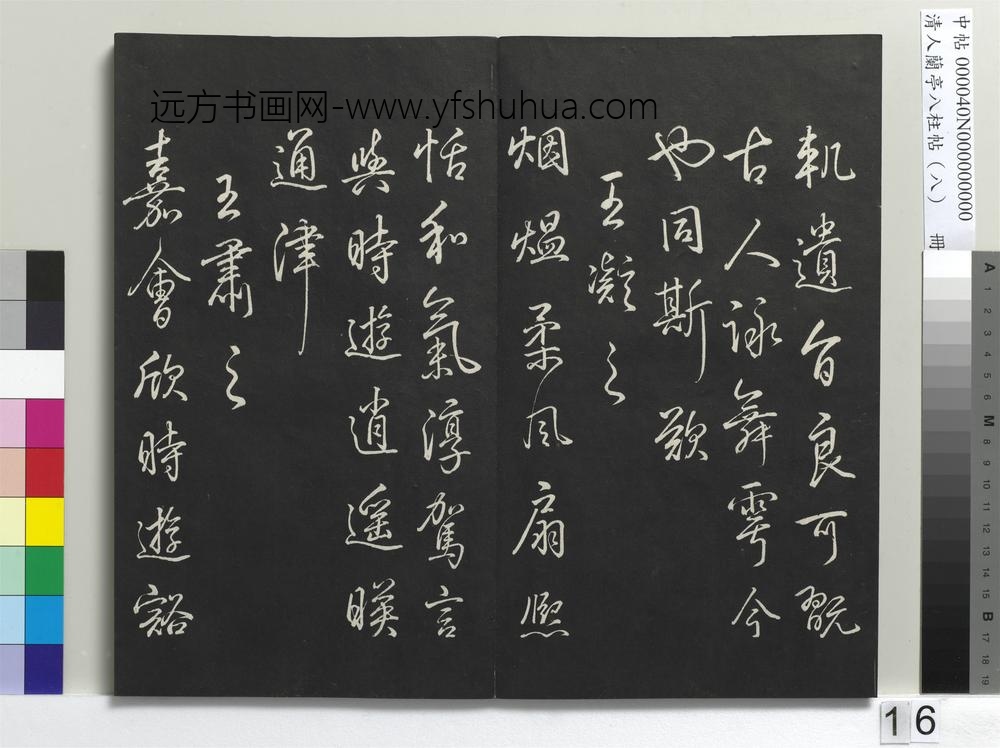 远方书画网-www.yfshuhua.com
軌遺旨良可翫
古人詠舞雩今
也同斯歎
王凝之
烟熅柔風扇熈
怡和氣淳駕言
與時遊逍遥暎
通津
王肅之
嘉會欣時遊豁
中帖000040N000000000
清人蘭亭八柱帖(八) 冊
A 1 2 3 4 5 6 M 8 9 10 11 12 13 14 15 B 17 18 19
16